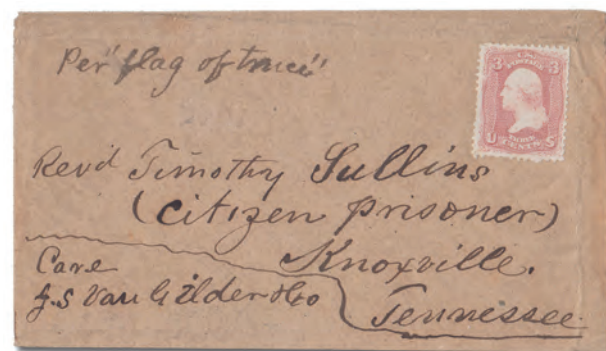 Per "flag of truce"
3 U.S. POSTAGE 3
U THREE CENTS S
Rev'd Timothy Sullins
(citizen prisoner)
Knoxville.
Tennessee
Care
J.S Van Gilder & Co